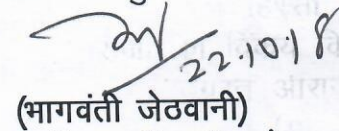 22.10.18
(भागवंती जेठवानी)